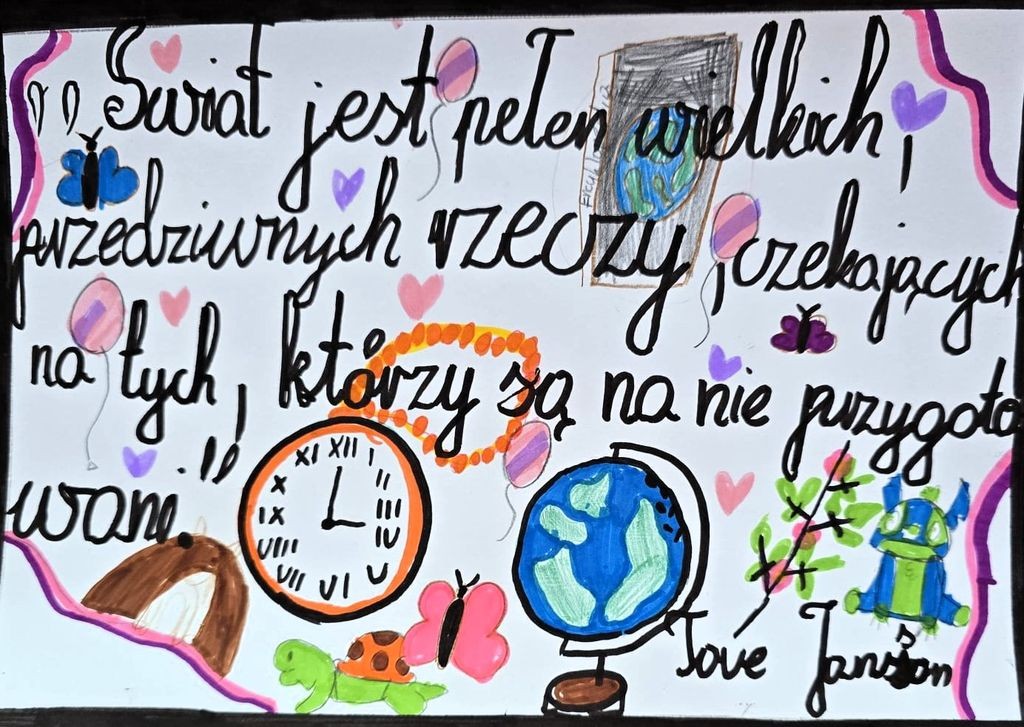 ,, Świat jest pełen wielkich,
przedziwnych rzeczy, czekających
na tych, którzy są na nie przygoto
wani"
XII I II III IV V VI VII VIII IX X XI
Tove Jansson